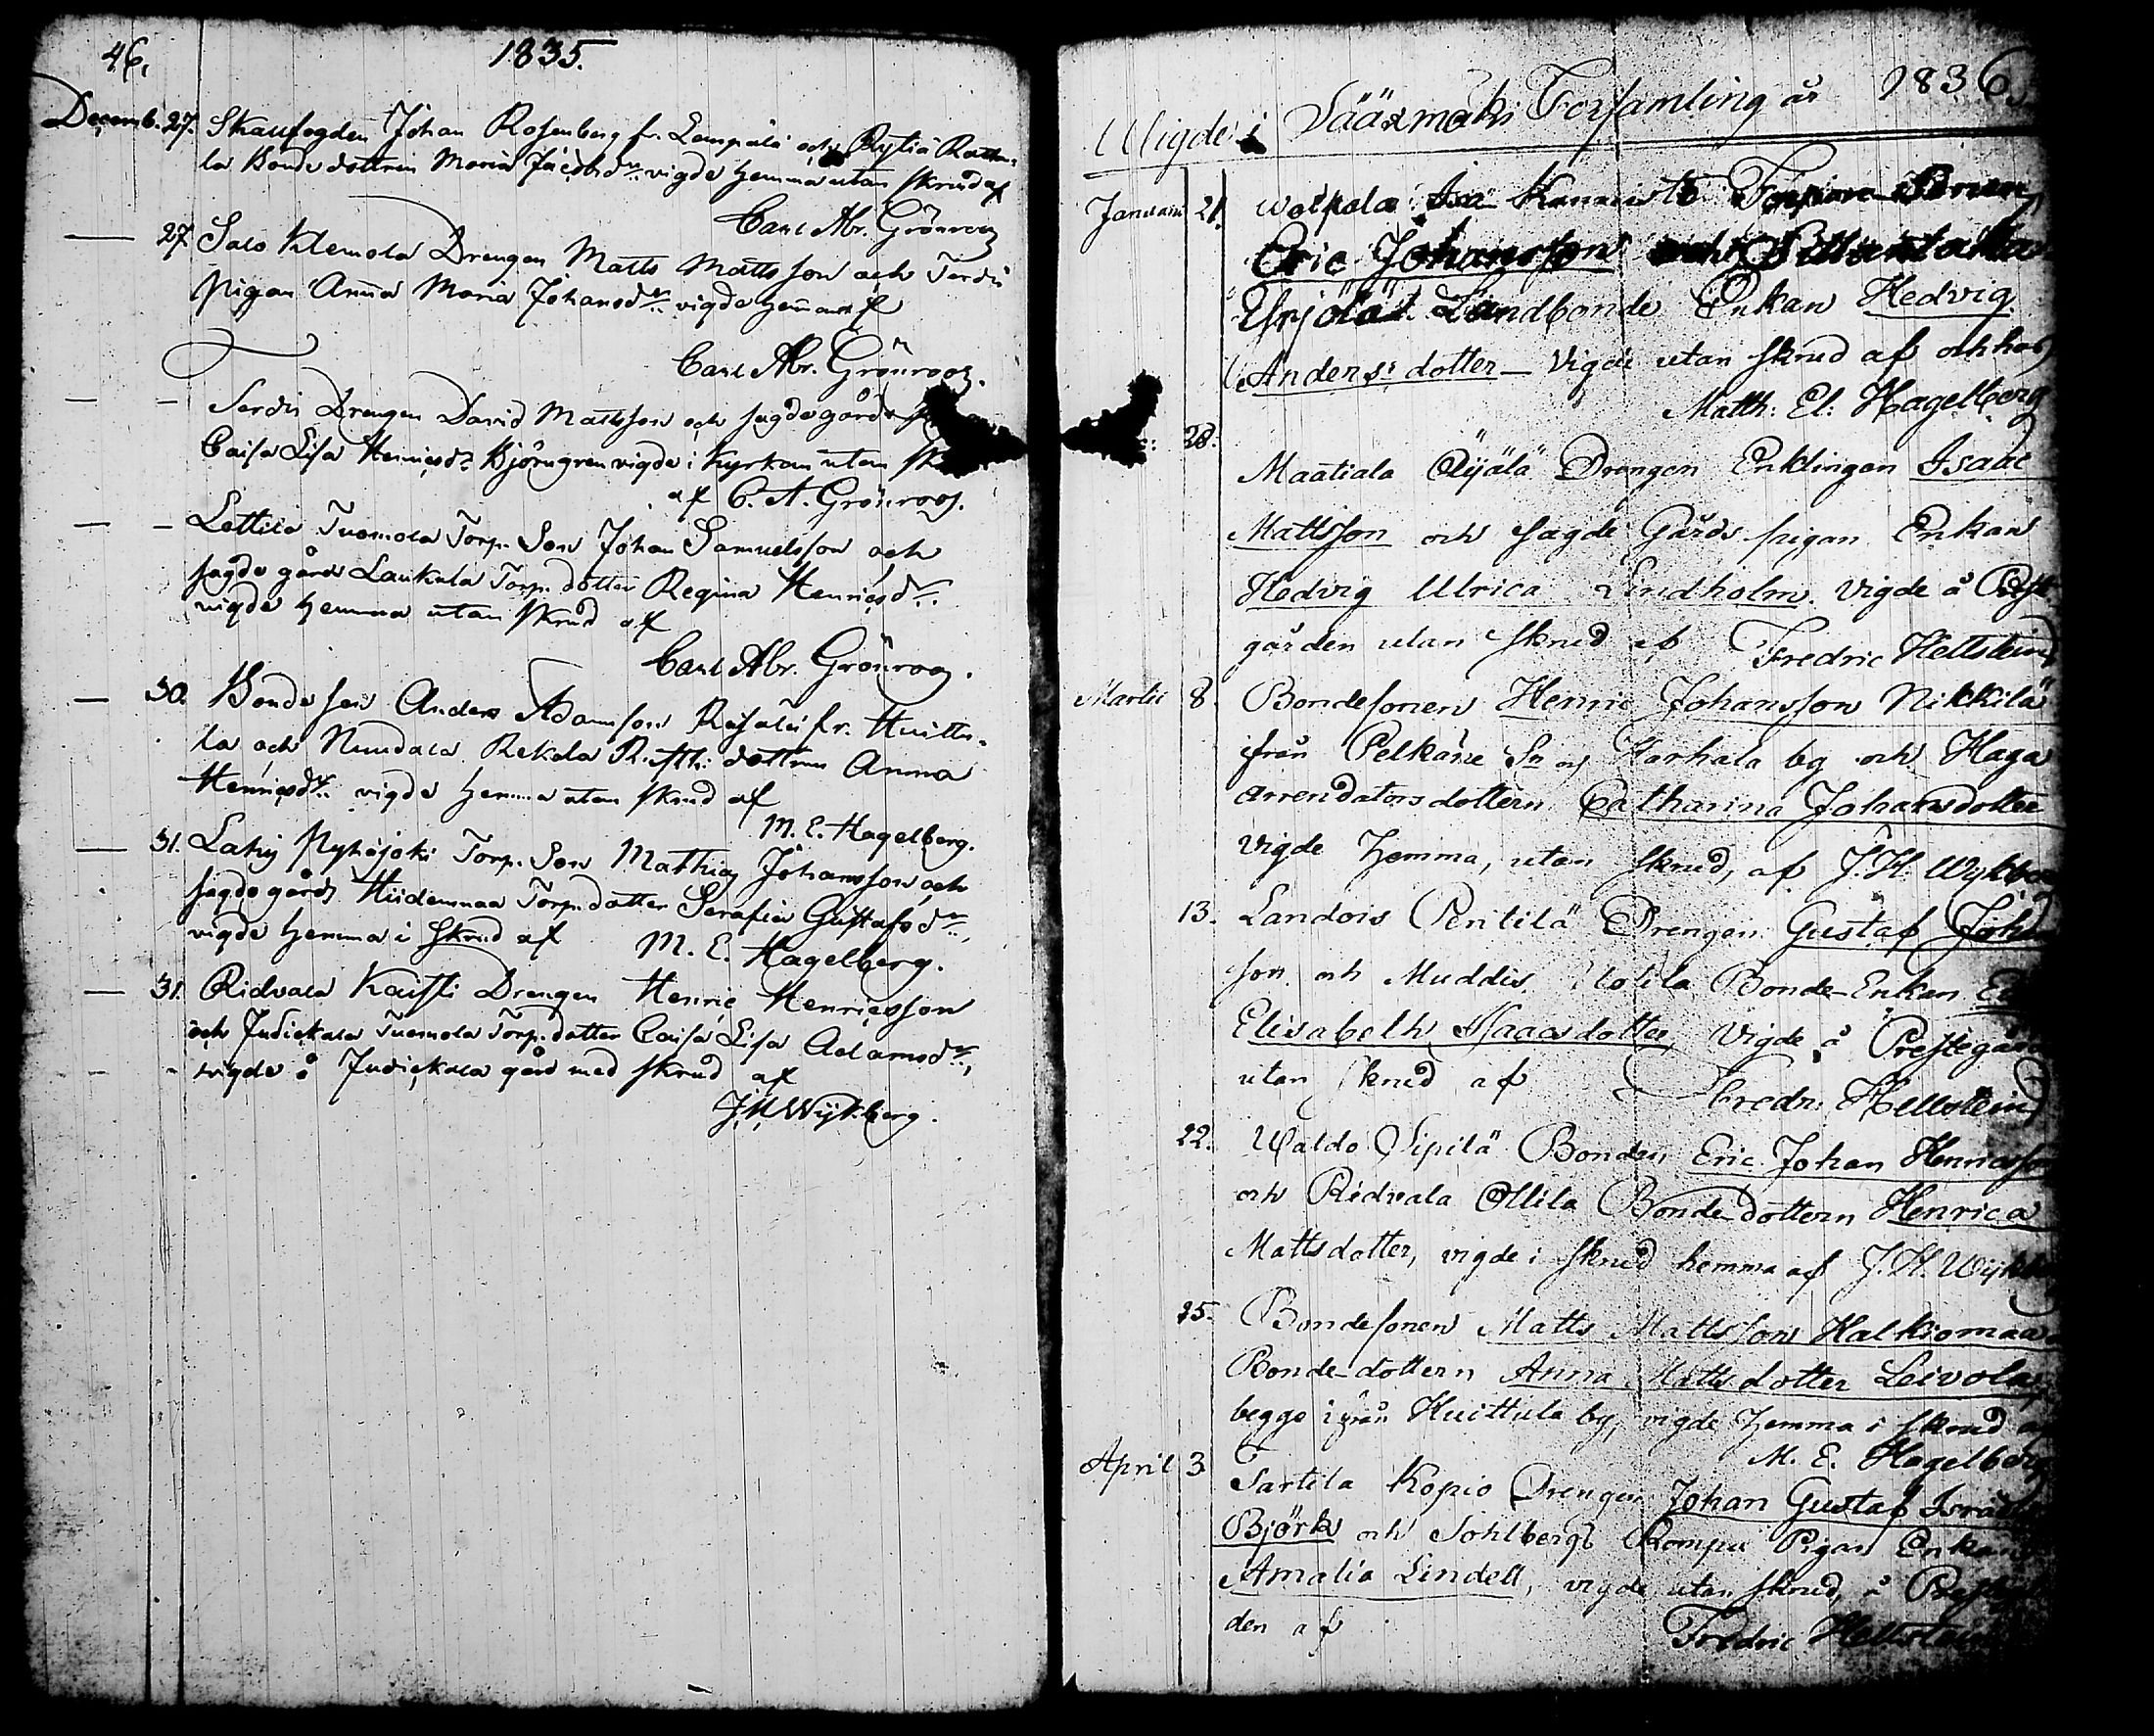 46.
1835.
Decemb. 27. Skaufogden Johan Rosenberg fr. Lempälä och Rytiä
la Bonde dottren Maria Jacobsdr. vigde hemma utan skrud af
Carl Abr. Grönroos
27 Salo Klemola Drengen Matts Mattsson och
pigan Anna Maria Johansdr. vigde hemma af
Carl Abr. Grönroos.
Drengen David Mattsson och sagde gårds
Caisa Lisa Henricsdr. Björngren vigde i Kyrkan utan
af C. A. Grönroos.
Lettilä Tuomola Torp. Son Johan Samuelsson och
sagde gårds Laukula Torp. dotter Regina Henricsdr.
vigde hemma utan skrud af
Carl Abr. Grönroos.
30. Bonde son Anders Adamsson fr. Huittu-
la och Rekola dottren Anna
Henricsdr. vigde hemma utan skrud af
M. E. Hagelberg.
31. Lahis Torp. Son Mathias Johansson och
sagde gårds Hiidenmaa Torp. dotter Serafia Gustafsdr.
vigde hemma i skrud af M. E. Hagelberg.
31. Ridvala Kaisti Drengen Henric Henricsson
och Judickala Tuomola Torp. dotter Caisa Lisa Adamsdr.,
vigde å Judickala gård med skrud af
J. H. Wijkberg.
Wigde i Sääxmäki Forsamling år 1836.
Januarii 21. Kannisto
Eric Johansson och
Yrjölä Landbonde Enkan Hedvig
Anders dotter – Vigde utan skrud af och hos
Matth: El: Hagelberg
28.
Maatiala Äijälä Drengen Enklingen Isaac
Mattsson och sagde Gårds pigan Enkan
Hedvig Ulrica Lindholm. Vigde å Prest
gården utan skrud af Fredric Hellstein
Martii 8. Bondesonen Henric Johansson Nikkilä
ifrån Pelkäne Sn och Harhala by och Haga
arrendators dottern Catharina Johansdotter
Vigde hemma, utan skrud, af J. H. Wykberg
13. Landois Penttilä Drengen Gustaf Joha
son och Muddis Bonde-Enkan
Elisabeth Isaacsdotter, Vigde å Prestegården
utan skrud af Fredr. Hellstein
22. Waldo Sipilä Bonden Eric Johan Henricsson
och Ridvala Ollila Bonde-dottern Henrica
Mattsdotter, vigde i skrud hemma af J. H. Wijkberg
25. Bondesonen Matts Mattsson Halkiomaa
Bonde-dottern Anna Mattsdotter Leivola,
begge ifrån Huittula by, vigde hemma i skrud af
M. E. Hagelberg
April 3 Sartila Kopio Drengen Johan Gustaf
Björk och Sohlbergs Rompu Pigan Enkan
Amalia Lindell, vigde utan skrud, å
den af Fredric Hellstein